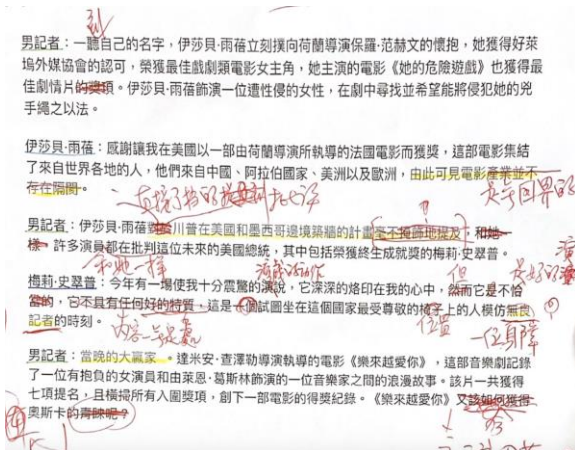 到
男記者：一聽自己的名字，伊莎貝·雨蓓立刻撲向荷蘭導演保羅·范赫文的懷抱，她獲得好萊
塢外媒協會的認可，榮獲最佳戲劇類電影女主角，她主演的電影《她的危險遊戲》也獲得最
佳劇情片的獎項。伊莎貝·雨蓓飾演一位遭性侵的女性，在劇中尋找並希望能將侵犯她的兇
手繩之以法。
伊莎貝·雨蓓：感謝讓我在美國以一部由荷蘭導演所執導的法國電影而獲獎，這部電影集結
了來自世界各地的人，他們來自中國、阿拉伯國家、美洲以及歐洲，由此可見電影產業並不
存在隔閡。
是無國界的
男記者：伊莎貝·雨蓓對川普在美國和墨西哥邊境築牆的計畫毫不掩飾地提及，和她一
樣，許多演員都在批判這位未來的美國總統，其中包括榮獲終生成就獎的梅莉·史翠普。
和她一樣
但
是好的
梅莉·史翠普：今年有一場使我十分震驚的演說，它深深的烙印在我的心中，然而它是不恰
當的，它不具有任何好的特質，這是一個試圖坐在這個國家最受尊敬的椅子上的人模仿無良
記者的時刻。
位置
一位身障
男記者：當晚的大贏家。達米安·查澤勒導演執導的電影《樂來越愛你》，這部音樂劇記錄
了一位有抱負的女演員和由萊恩·葛斯林飾演的一位音樂家之間的浪漫故事。該片一共獲得
七項提名，且橫掃所有入圍獎項，創下一部電影的得獎紀錄。《樂來越愛你》又該如何獲得
奧斯卡的青睞呢？